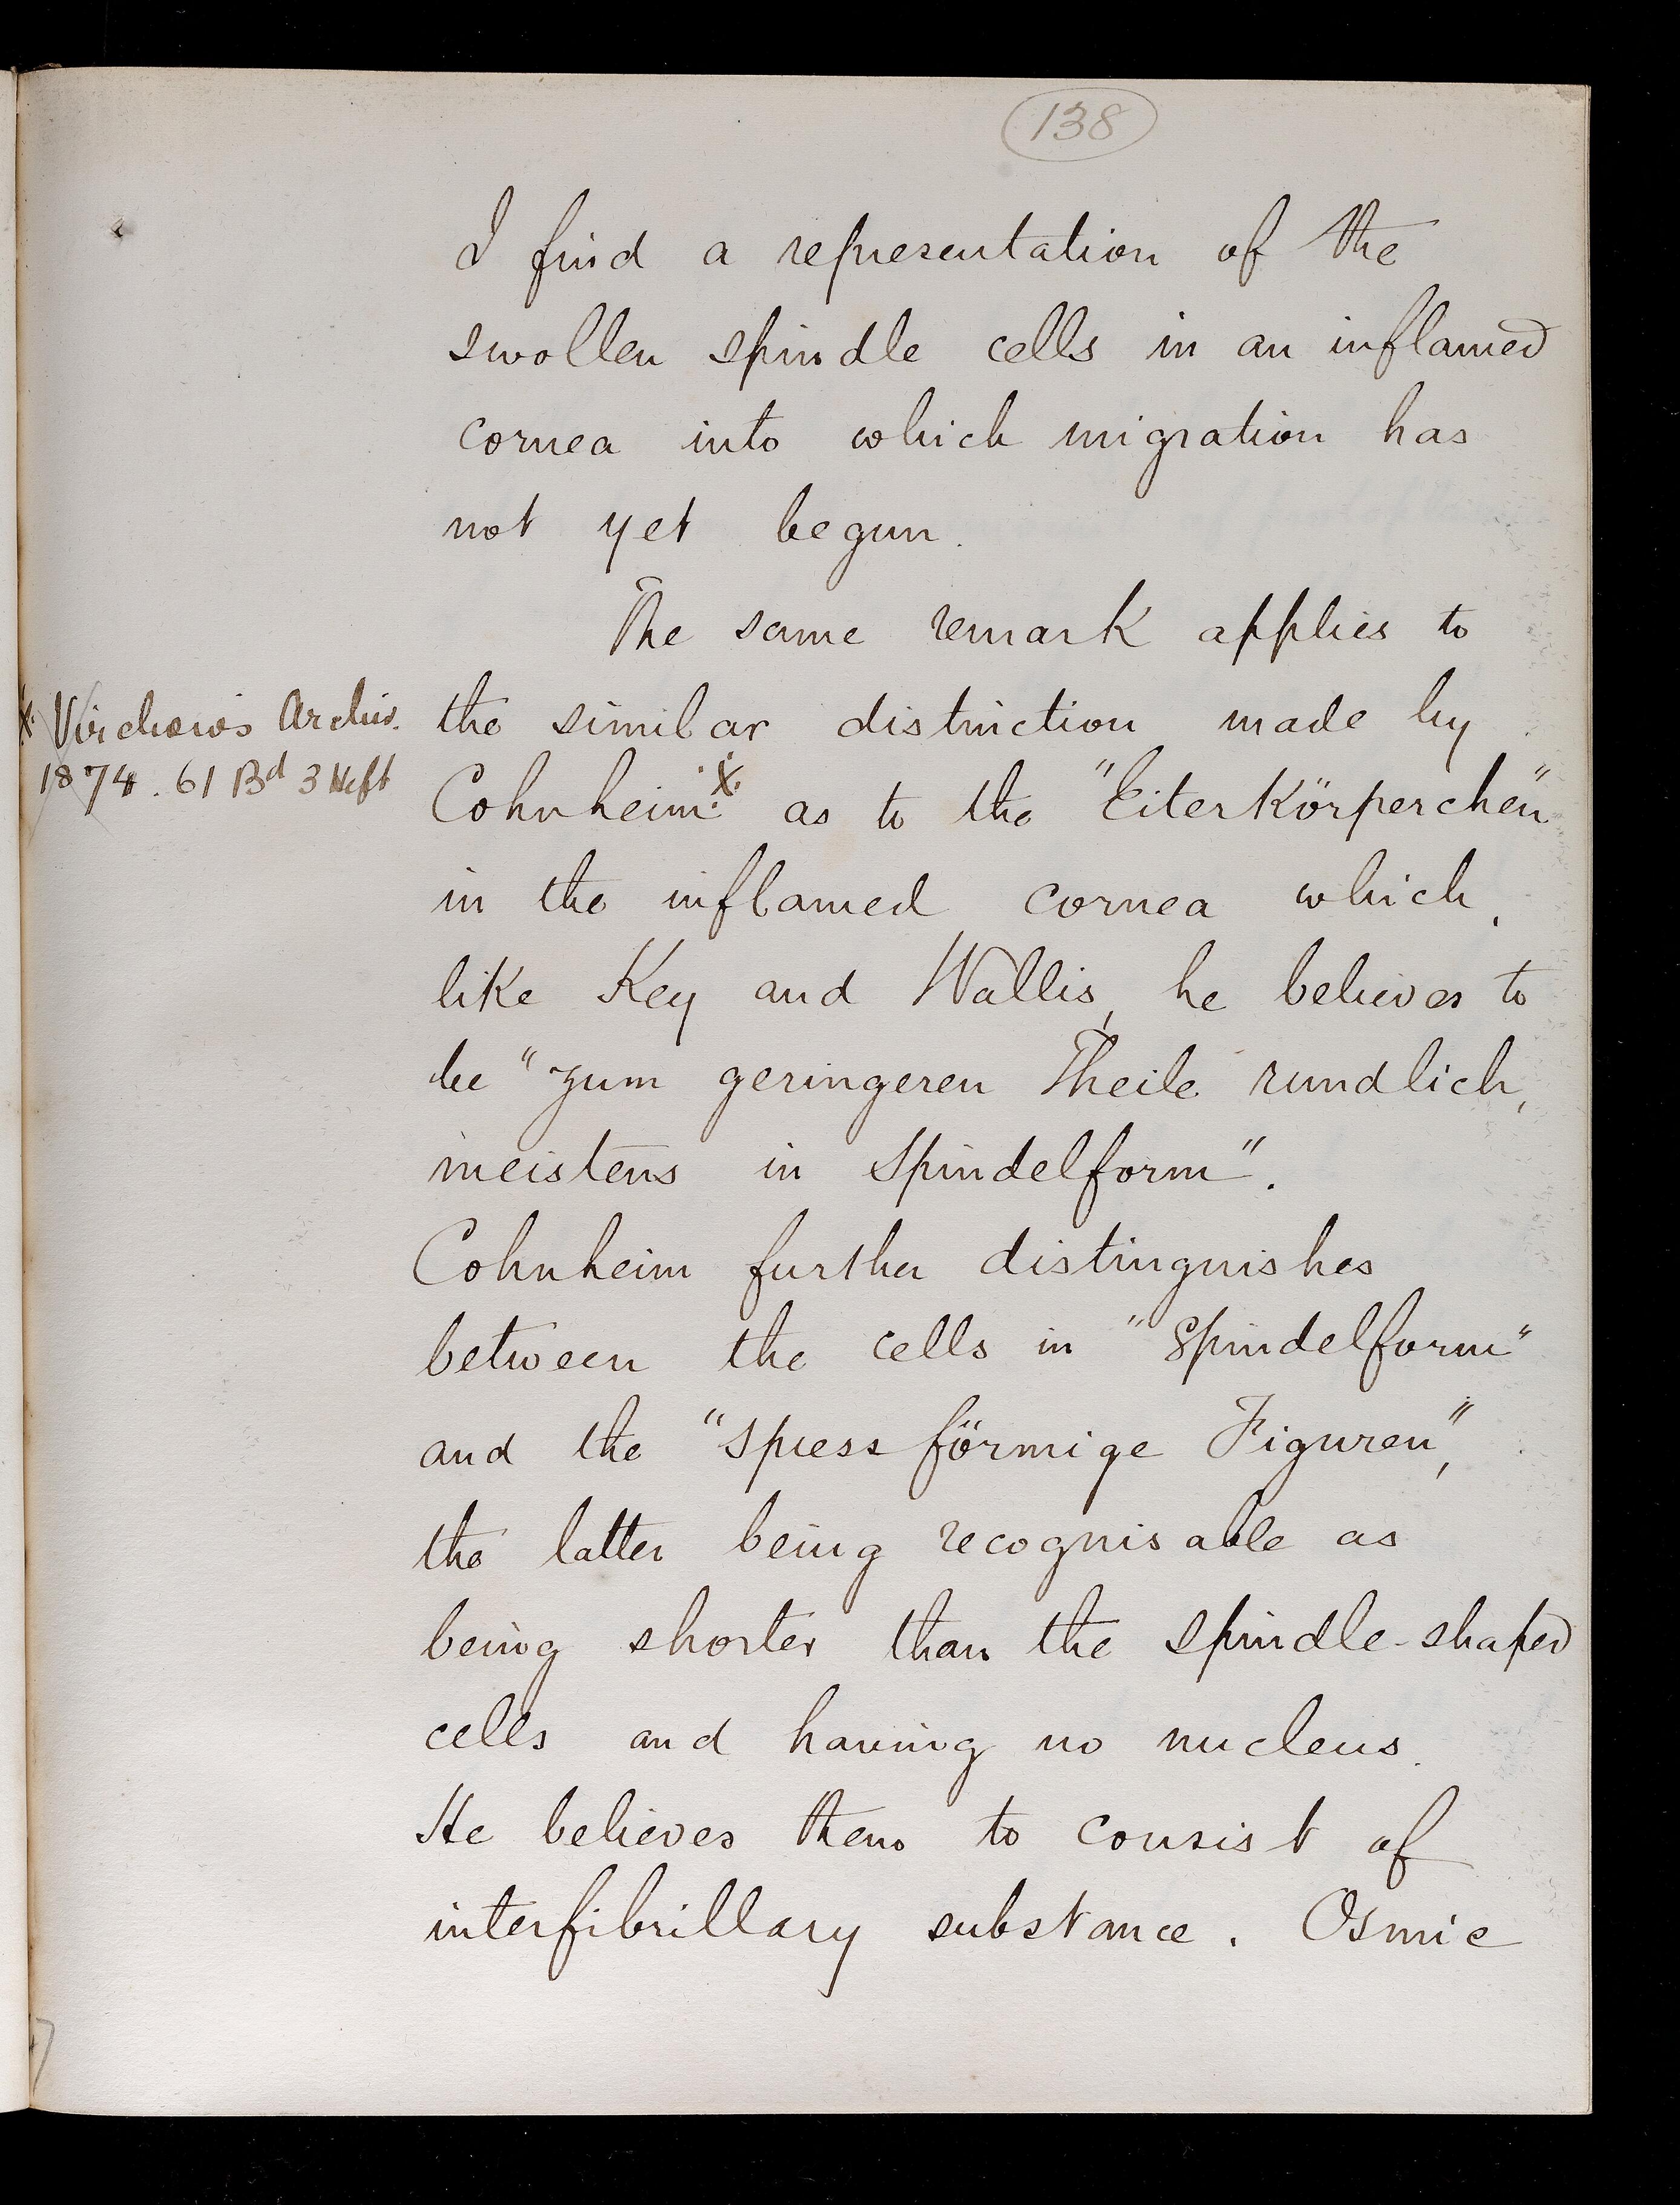 138
I find a representation of the
swollen spindle cells in an inflamed
cornea into which migration has
not yet begun.
The same remark applies to
the similar distinction made by
x Virchow's Archiv.
1874. 61 Bd 3 Heft
Cohnheim x as to the "Eiterkörperchen"
in the inflamed cornea which,
like Key and Wallis, he believes to
be "zum geringeren Theile rundlich,
meistens in Spindelform".
Cohnheim further distinguishes
between the cells in "Spindelform"
and the "spiessförmige Figuren",
the latter being recognisable as
being shorter than the spindle-shaped
cells and having no nucleus.
He believes them to consist of
interfibrillary substance. Osmic